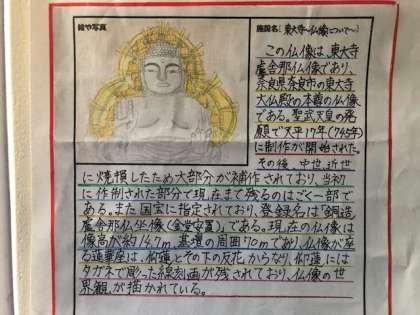 絵や写真
施設名:(東大寺〜仏像について〜)
この仏像は、東大寺
盧舎那仏像であり、
奈良県奈良市の東大寺
大仏殿の本尊の仏像
である。聖武天皇の発
願で天平17年(745年)
に制作が開始された。
その後、中世、近世
に焼損したため大部分が補作されており、当初
に作制された部分で現在まで残るのはごく一部で
ある。また国宝に指定されており、登録名は「銅造
盧舎那仏坐像(金堂安置)」である。現在の仏像は
像高が約14.7m、基壇の周囲70mであり、仏像が座
る蓮華座は、仰蓮とその下の反花からなり、仰蓮には
タガネで彫った線刻画が残されており、仏像の世
界観が描かれている。